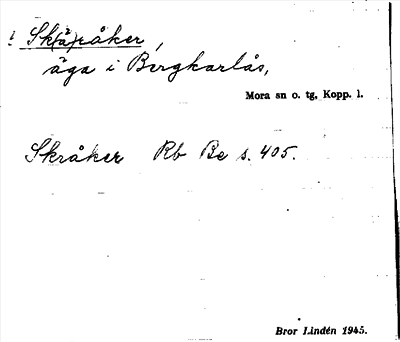 ! Sk(ä)råker,
äga i Bergkarlås,
Mora sn o. tg, Kopp. l.
Skråker Rb Be s. 405.
Bror Lindén 1945.